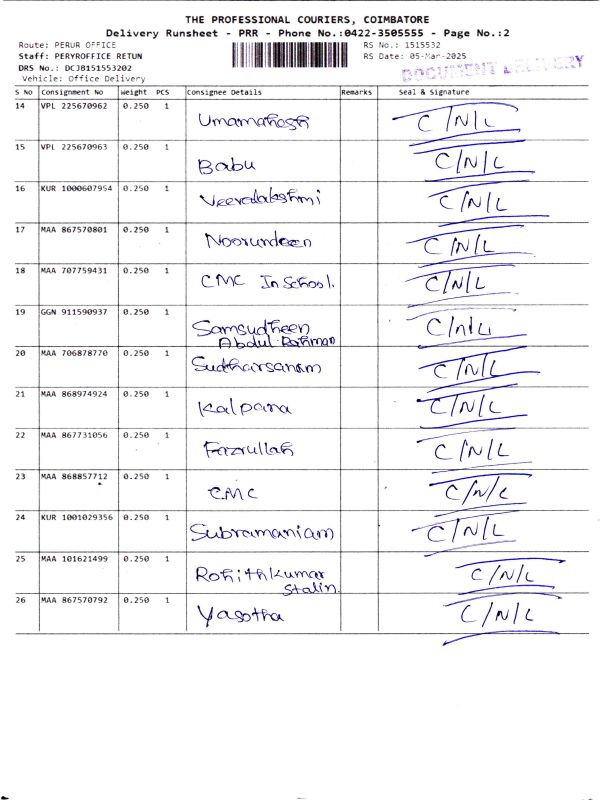 THE PROFESSIONAL COURIERS, COIMBATORE
Delivery Runsheet - PRR - Phone No.:0422-3505555 - Page No.:2
Route: PERUR OFFICE RS No.: 1515532
Staff: PERYROFFICE RETUN RS Date: 05-Mar-2025
DRS No.: DCJB151553202 DOCUMENT DELIVERY
Vehicle: Office Delivery
S No Consignment No Weight PCS Consignee Details Remarks Seal & Signature
14 VPL 225670962 0.250 1 Umamahesh C/N/L
15 VPL 225670963 0.250 1 Babu C/N/L
16 KUR 1000607954 0.250 1 Veeralakshmi C/N/L
17 MAA 867570801 0.250 1 Noorundeen C/N/L
18 MAA 707759431 0.250 1 CMC In School. C/N/L
19 GGN 911590937 0.250 1 Samsudheen C/N/L
Abdul Rahman
20 MAA 706878770 0.250 1 Sudharsanam C/N/L
21 MAA 868974924 0.250 1 Kalpana C/N/L
22 MAA 867731056 0.250 1 Fazrullah C/N/L
23 MAA 868857712 0.250 1 CMC C/N/L
24 KUR 1001029356 0.250 1 Subramaniam C/N/L
25 MAA 101621499 0.250 1 Rohithkumar C/N/L
Stalin.
26 MAA 867570792 0.250 1 Yasotha C/N/L